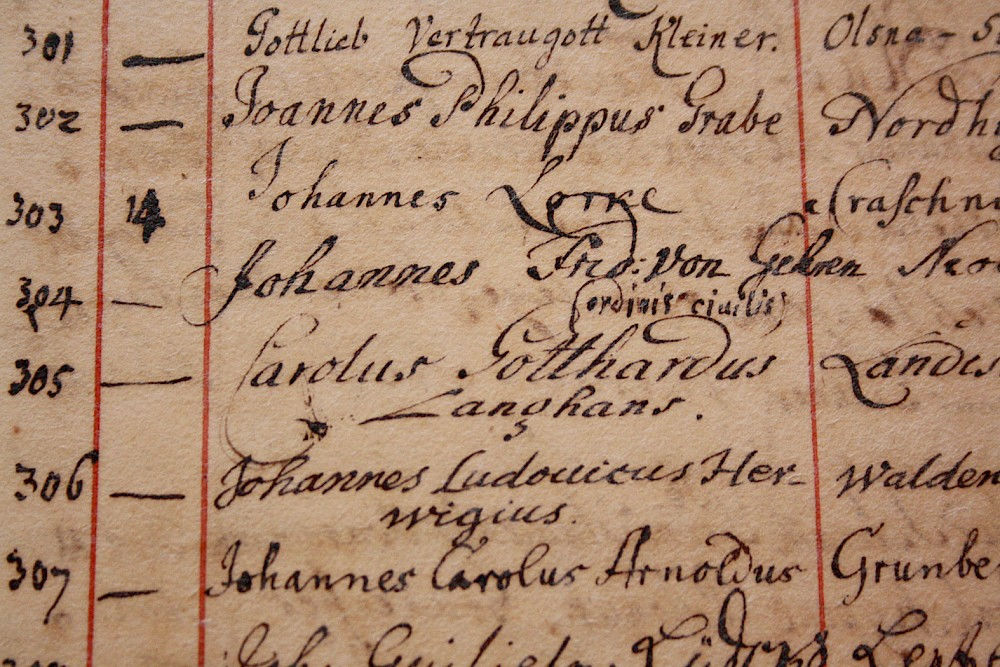 301 — Gottlieb Vertraugott Kleiner. Olsna -
302 — Joannes Philippus Grabe Nordh
303 14 Johannes Lorke Craschni
304 — Johannes Frid: von Gehren
(ordinis civilis)
305 — Carolus Gotthardus Landes
Langhans.
306 — Johannes Ludovicus Her- Walden
wigius.
307 — Johannes Carolus Arnoldus Grunbe
Joh. Guilielm.